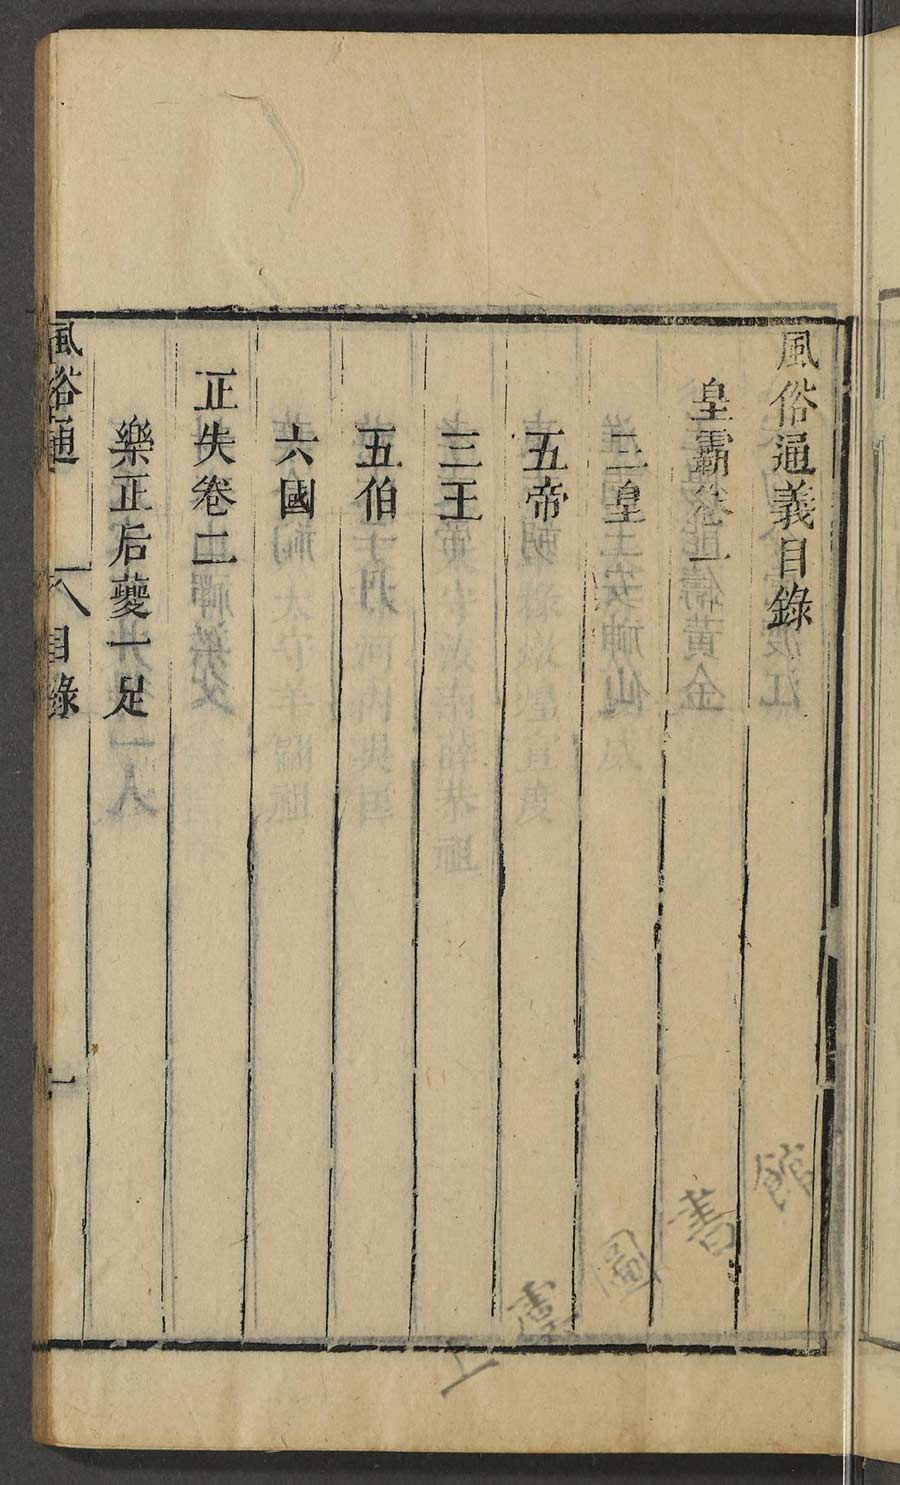 風俗通義目錄
皇霸卷一
三皇
五帝
三王
五伯
六國
正失卷二
樂正后夔一足
風俗通
目錄
一
上虞圖書館